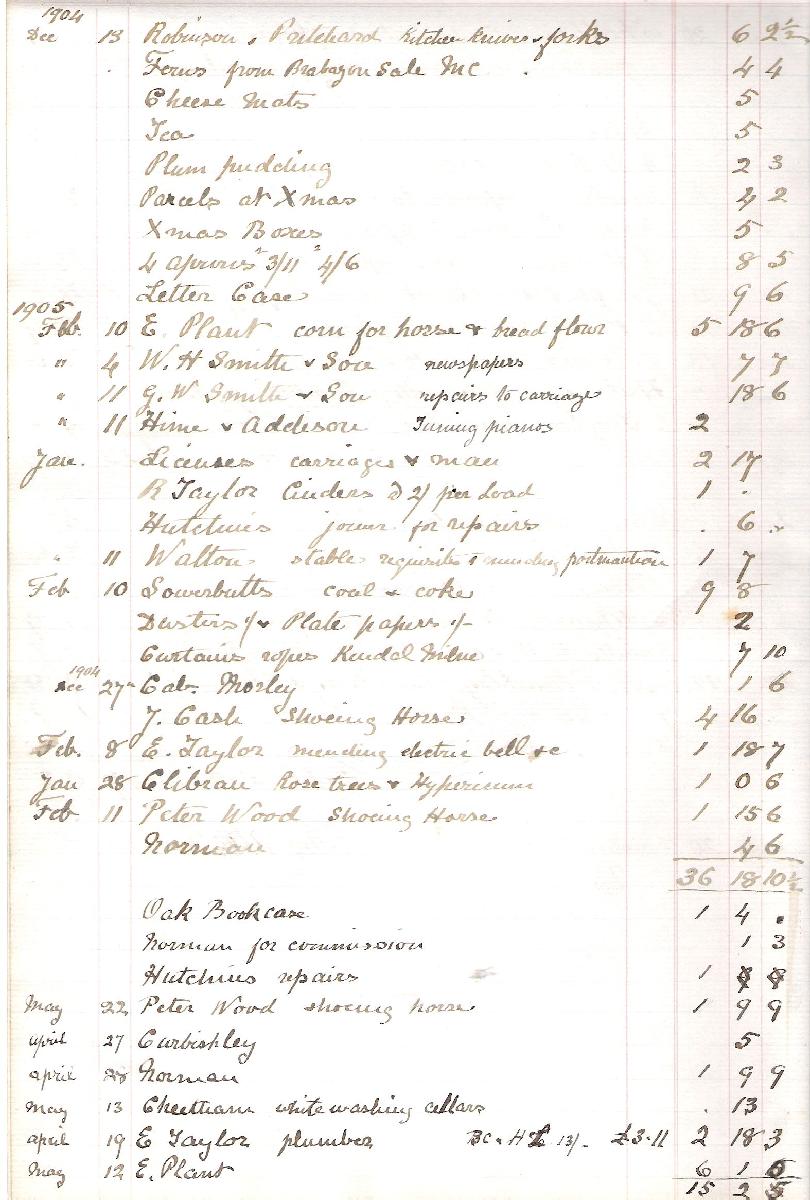 1904
Dec 13 Robinson, Pritchard kitchen knives & forks 6 2½
from Brabazon Sale MC 4 4
Cheese Mats 5
Tea 5
Plum pudding 2 3
Parcels at Xmas 4 2
Xmas Boxes 5
4 aprons 3/11 4/6 8 5
Letter Case 9 6
1905
Feb. 10 E. Plant corn for horse & bread flour 5 18 6
" 4 W. H Smith & Son newspapers 7 7
" 11 G. W Smith & Son repairs to carriage 18 6
" 11 Hime & Addison Tuning pianos 2
Jan. Licenses carriages & man 2 17
R Taylor Cinders @ 2/ per Load 1 .
Hutchins joiner for repairs . 6 ..
" 11 Walton stable requisites & mending portmanteau 1 7
Feb 10 Sowerbutts coal & coke 9 8
Dusters /& Plate papers /- 2
Curtains ropes Kendal Milne 7 10
1904
Dec 27 Cab. Morley 1 6
J. Cash Shoeing Horse 4 16
Feb. 8 E. Taylor mending electric bell &c 1 18 7
Jan 28 Clibran Rose trees & Hypericum 1 0 6
Feb 11 Peter Wood Shoeing Horse 1 15 6
Norman 4 6
36 18 10½
Oak Bookcase 1 4 .
Norman for commission 1 3
Hutchins repairs 1
May 22 Peter Wood shoeing horse 1 9 9
april 27 Curbishley 5
april 28 Norman 1 9 9
May 13 Cheetham white washing cellars . 13
april 19 E Taylor plumber 13/- £3-11 2 18 3
May 12 E. Plant 6 1
15 2 5